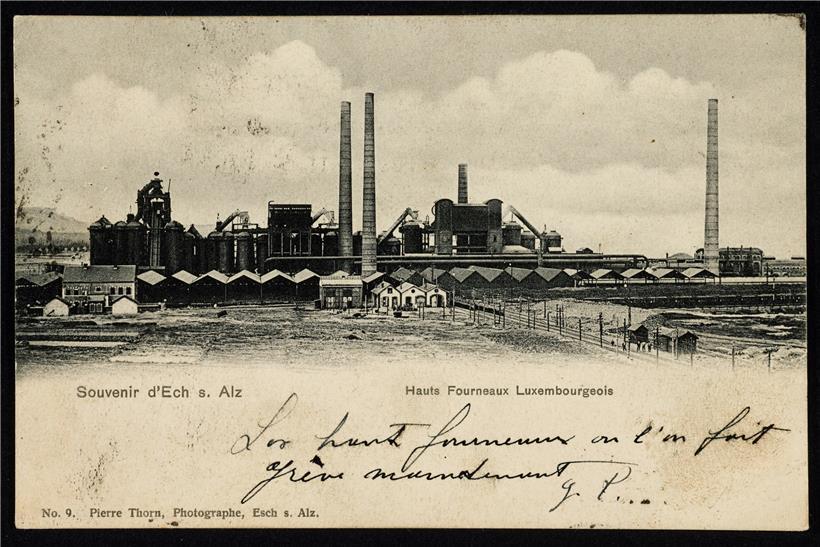 Souvenir d'Ech s. Alz
Hauts Fourneaux Luxembourgeois
Les haut fourneaux ou l'on fait
grève maintenant
g. P....
No. 9. Pierre Thorn, Photographe, Esch s. Alz.